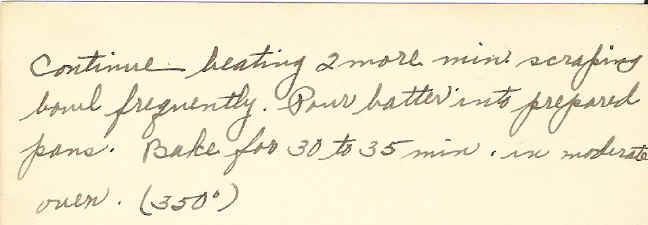 Continue beating 2 more min scraping
bowl frequently. Pour batter into prepared
pans. Bake for 30 to 35 min. in moderate
oven. (350°)